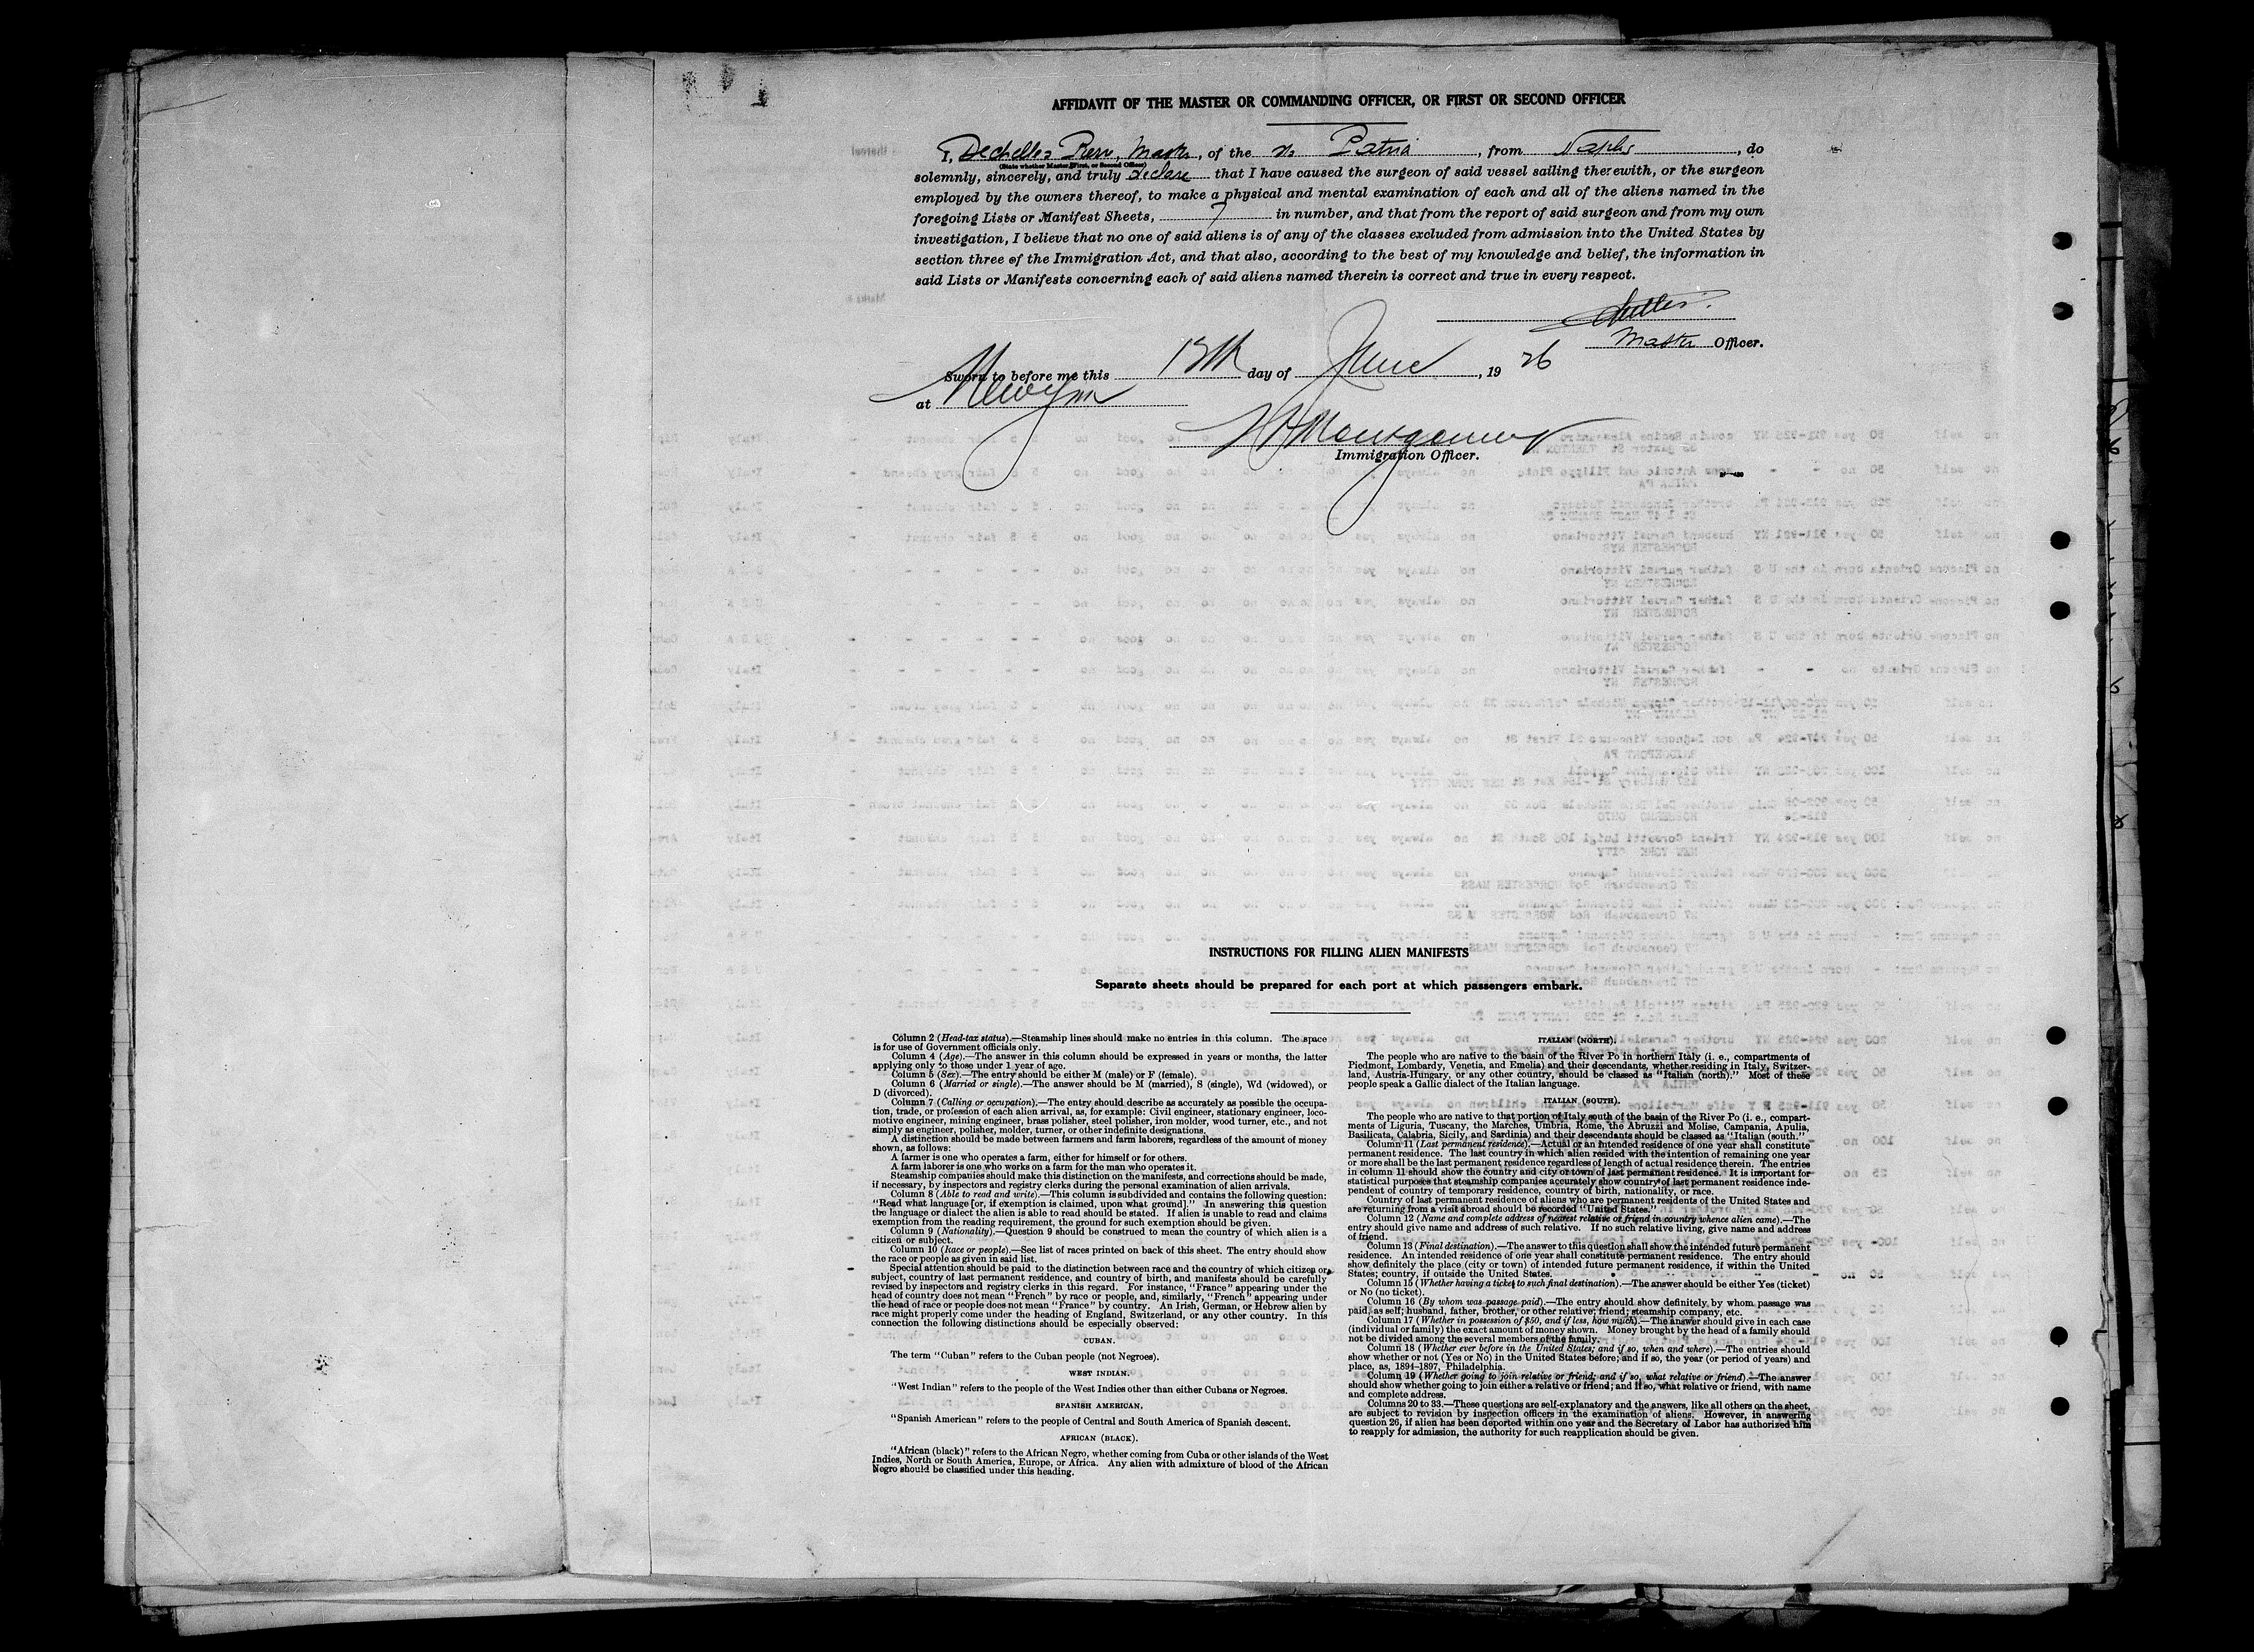 AFFIDAVIT OF THE MASTER OR COMMANDING OFFICER, OR FIRST OR SECOND OFFICER
I, Dechelles Master, of the Patria, from Naples, do
(State whether Master, First, or Second Officer)
solemnly, sincerely, and truly declare that I have caused the surgeon of said vessel sailing therewith, or the surgeon
employed by the owners thereof, to make a physical and mental examination of each and all of the aliens named in the
foregoing Lists or Manifest Sheets, 7 in number, and that from the report of said surgeon and from my own
investigation, I believe that no one of said aliens is of any of the classes excluded from admission into the United States by
section three of the Immigration Act, and that also, according to the best of my knowledge and belief, the information in
said Lists or Manifests concerning each of said aliens named therein is correct and true in every respect.
Master Officer.
Sworn to before me this day of June, 19 26
at New York
Montgomery
Immigration Officer.
INSTRUCTIONS FOR FILLING ALIEN MANIFESTS
Separate sheets should be prepared for each port at which passengers embark.
Column 2 (Head-tax status).—Steamship lines should make no entries in this column. The space
is for use of Government officials only.
Column 4 (Age).—The answer in this column should be expressed in years or months, the latter
applying only to those under 1 year of age.
Column 5 (Sex).—The entry should be either M (male) or F (female).
Column 6 (Married or single).—The answer should be M (married), S (single), Wd (widowed), or
D (divorced).
Column 7 (Calling or occupation).—The entry should describe as accurately as possible the occupa-
tion, trade, or profession of each alien arrival, as, for example: Civil engineer, stationary engineer, loco-
motive engineer, mining engineer, brass polisher, steel polisher, iron molder, wood turner, etc., and not
simply as engineer, polisher, molder, turner, or other indefinite designations.
A distinction should be made between farmers and farm laborers, regardless of the amount of money
shown, as follows:
A farmer is one who operates a farm, either for himself or for others.
A farm laborer is one who works on a farm for the man who operates it.
Steamship companies should make this distinction on the manifests, and corrections should be made,
if necessary, by inspectors and registry clerks during the personal examination of alien arrivals.
Column 8 (Able to read and write).—This column is subdivided and contains the following question:
"Read what language [or, if exemption is claimed, upon what ground]." In answering this question
the language or dialect the alien is able to read should be stated. If alien is unable to read and claims
exemption from the reading requirement, the ground for such exemption should be given.
Column 9 (Nationality).—Question 9 should be construed to mean the country of which alien is a
citizen or subject.
Column 10 (Race or people).—See list of races printed on back of this sheet. The entry should show
the race or people as given in said list.
Special attention should be paid to the distinction between race and the country of which citizen or
subject, country of last permanent residence, and country of birth, and manifests should be carefully
revised by inspectors and registry clerks in this regard. For instance, "France" appearing under the
head of country does not mean "French" by race or people, and, similarly, "French" appearing under
the head of race or people does not mean "France" by country. An Irish, German, or Hebrew alien by
race might properly come under the heading of England, Switzerland, or any other country. In this
connection the following distinctions should be especially observed:
CUBAN.
The term "Cuban" refers to the Cuban people (not Negroes).
WEST INDIAN.
"West Indian" refers to the people of the West Indies other than either Cubans or Negroes.
SPANISH AMERICAN.
"Spanish American" refers to the people of Central and South America of Spanish descent.
AFRICAN (BLACK).
"African (black)" refers to the African Negro, whether coming from Cuba or other islands of the West
Indies, North or South America, Europe, or Africa. Any alien with admixture of blood of the African
Negro should be classified under this heading.
ITALIAN (NORTH).
The people who are native to the basin of the River Po in northern Italy (i. e., compartments of
Piedmont, Lombardy, Venetia, and Emelia) and their descendants, whether residing in Italy, Switzer-
land, Austria-Hungary, or any other country, should be classed as "Italian (north)." Most of these
people speak a Gallic dialect of the Italian language.
ITALIAN (SOUTH).
The people who are native to that portion of Italy south of the basin of the River Po (i. e., compart-
ments of Liguria, Tuscany, the Marches, Umbria, Rome, the Abruzzi and Molise, Campania, Apulia,
Basilicata, Calabria, Sicily, and Sardinia) and their descendants should be classed as "Italian (south."
Column 11 (Last permanent residence).—Actual or an intended residence of one year shall constitute
permanent residence. The last country in which alien resided with the intention of remaining one year
or more shall be the last permanent residence regardless of length of actual residence therein. The entries
in column 11 should show the country and city or town of last permanent residence. It is important for
statistical purposes that steamship companies accurately show country of last permanent residence inde-
pendent of country of temporary residence, country of birth, nationality, or race.
Country of last permanent residence of aliens who are permanent residents of the United States and
are returning from a visit abroad should be recorded "United States."
Column 12 (Name and complete address of nearest relative or friend in country whence alien came).—The
entry should give name and address of such relative. If no such relative living, give name and address
of friend.
Column 13 (Final destination).—The answer to this question shall show the intended future permanent
residence. An intended residence of one year shall constitute permanent residence. The entry should
show definitely the place (city or town) of intended future permanent residence, if within the United
States; country, if outside the United States.
Column 15 (Whether having a ticket to such final destination).—The answer should be either Yes (ticket)
or No (no ticket).
Column 16 (By whom was passage paid).—The entry should show definitely by whom passage was
paid, as self, husband, father, brother, or other relative; friend; steamship company, etc.
Column 17 (Whether in possession of $50, and if less, how much).—The answer should give in each case
(individual or family) the exact amount of money shown. Money brought by the head of a family should
not be divided among the several members of the family.
Column 18 (Whether ever before in the United States; and if so, when and where).—The entries should
show whether or not (Yes or No) in the United States before; and if so, the year (or period of years) and
place, as, 1894–1897, Philadelphia.
Column 19 (Whether going to join relative or friend; and if so, what relative or friend).—The answer
should show whether going to join either a relative or friend; and if so, what relative or friend, with name
and complete address.
Columns 20 to 33.—These questions are self-explanatory and the answers, like all others on the sheet,
are subject to revision by inspection officers in the examination of aliens. However, in answering
question 26, if alien has been deported within one year and the Secretary of Labor has authorized him
to reapply for admission, the authority for such reapplication should be given.